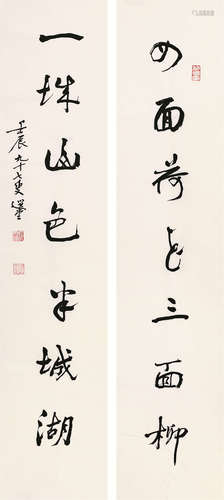 四面荷花三面柳
一城山色半城湖
壬辰九十七叟選堂